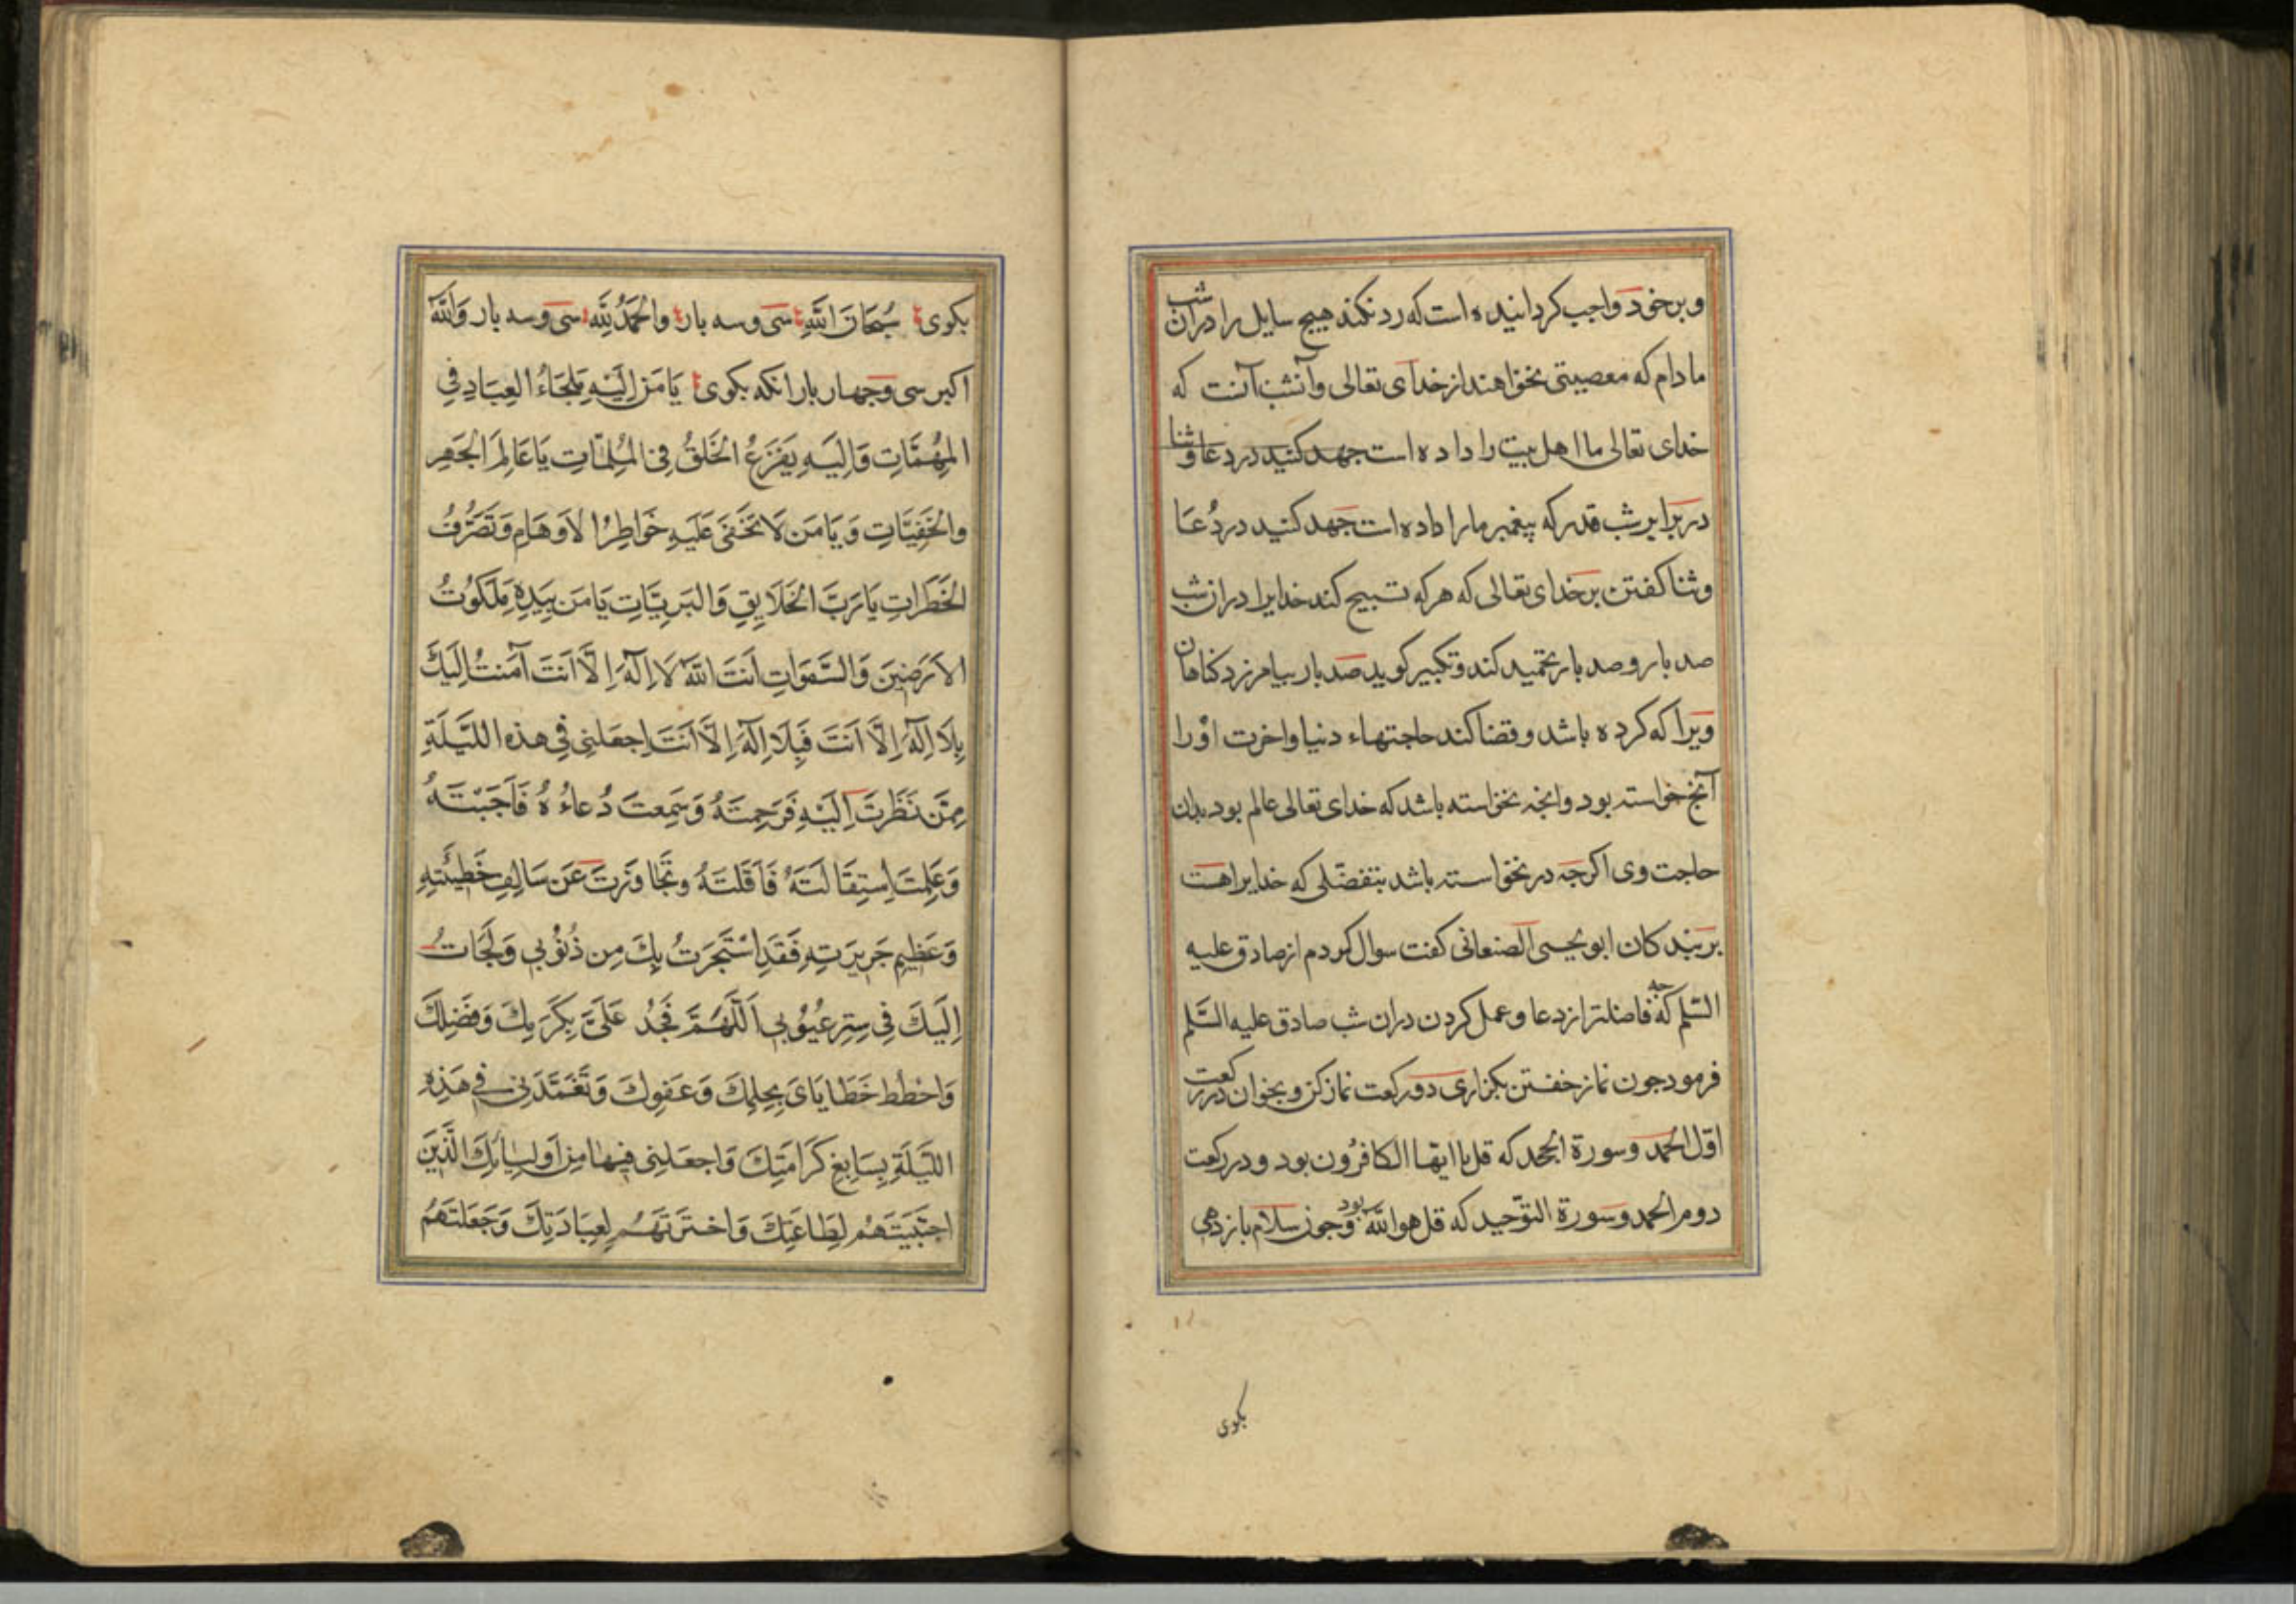 وبرخود واجب کردانیده است که رد نکند هیچ سایل را دران شب
مادام که معصیتی نخواهند از خدای تعالی وآنشب آنست که
خدای تعالی ما اهل بیت را داده است جهد کنید در دعا وثنا
در برابر شب قدر که پیغمبر ما را داده است جهد کنید در دُعا
وثنا کفتن بر خدای تعالی که هر که تسبیح کند خدایرا دران شب
صد بار و صد بار تحمید کند وتکبیر کوید صد بار بیامرزد کناهان
ویرا که کرده باشد و قضا کند حاجتهاء دنیا واخرت اورا
آنج خواسته بود وانجه نخواسته باشد که خدای تعالی عالم بود بدان
حاجت وی اکرچه در نخواسته باشد بتفضّلی که خدایرا هست
بر بندکان ابو یحیی الصنعانی کفت سوال کردم از صادق علیه
السّلم که چه فاضلتر از دعا و عمل کردن دران شب صادق علیه السَّلم
فرمود جون نماز خفتن بکزاری دو رکعت نماز کن و بخوان در رکعت
اوّل الحمد وسورة الجحد که قل یا ایّها الکافرُون بود و در رکعت
دوم الحمد وسورة التوّحید که قل هو الله بود وجون سلام باز دهی
بکوی
بکوی سُبحَانَ اللَّهِ سَی وسه بار والحَمدُ لِلَّهِ سَی وسه بار وَاللَّهُ
اکبر سی وجهار بار انکه بکوی یَا مَن اِلَیهِ مَلجَاءُ العِبَادِ فِی
المُهِمَّاتِ وَاِلَیهِ یَفزَعُ الخَلقُ فِی المُلِمَّاتِ یَا عَالِمَ الجَهرِ
وَالخَفِیَّاتِ وَیَا مَن لَا تَخفَی عَلَیهِ خَوَاطِرُ الاَوهَامِ وَتَصَرُّفُ
الخَطَرَاتِ یَا رَبَّ الخَلَایِقِ وَالبَرِیَّاتِ یَا مَن بِیَدِهِ مَلَکُوتُ
الاَرَضِینَ وَالسَّمَوَاتِ اَنتَ اللَّهُ لَا اِلَهَ اِلَّا اَنتَ آمَنتُ اِلَیكَ
بِلَا اِلَهَ اِلَّا اَنتَ فَبِلَا اِلَهَ اِلَّا اَنتَ اِجعَلنِی فِی هذه اللَّیلَةِ
مِمَّن نَظَرتَ اِلَیهِ فَرَحِمتَهُ وَسَمِعتَ دُعاءُهُ فَاَجَبتَهُ
وَعَلِمتَ اِستِقَالَتَهُ فَاَقَلتَهُ وتَجَاوَزتَ عَن سَالِفِ خَطِیئَتِهِ
وَعَظِیمِ جَرِیرَتِهِ فَقَدِ اسْتَجَرتُ بِكَ مِن ذُنُوبِی وَلَجَاتُ
اِلَیكَ فِی سِترِ عُیُوبِی اَللَّهُمَّ فَجُد عَلَیَّ بِکَرَمِكَ وَفَضلِكَ
وَاحطُط خَطَایَایَ بِحِلمِكَ وَعَفوِكَ وَتَغَمَّدَنِی فِی هَذِهِ
اللَّیلَةِ بِسَابِغِ کَرَامَتِكَ وَاجعَلنِی فِیهَا مِن اَولِیائِكَ الَّذِینَ
اجتَبَیتَهُم لِطَاعَتِكَ وَاختَرتَهُم لِعِبَادَتِكَ وَجَعَلتَهُم